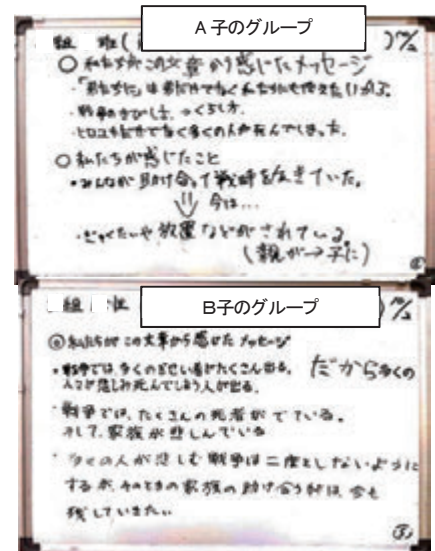 A子のグループ
組 班(
○私たちがこの文章から感じたメッセージ
・「君たちに」は君だけでなく私たちにも
・戦争のきびしさ、つくろし方.
・ヒロユキだけでなく多くの人が死んでしまった.
○私たちが感じたこと
・みんなが助け合って戦時を生きていた。
⇓ 今は…
・ぎゃくたいや放置などがされている。
(親が→子に)
B子のグループ
組 班
◎私たちがこの文章から感じたメッセージ
・戦争では、多くのぎせい者がたくさん出る。だから多くの
人々が悲しみ死んでしまう人が出る。
・戦争では、たくさんの死者がでている。
そして、家族が悲しんでいる
・多くの人が悲しむ戦争は二度としないように
するが、そのときの家族の助け合う絆は、今も
残していきたい